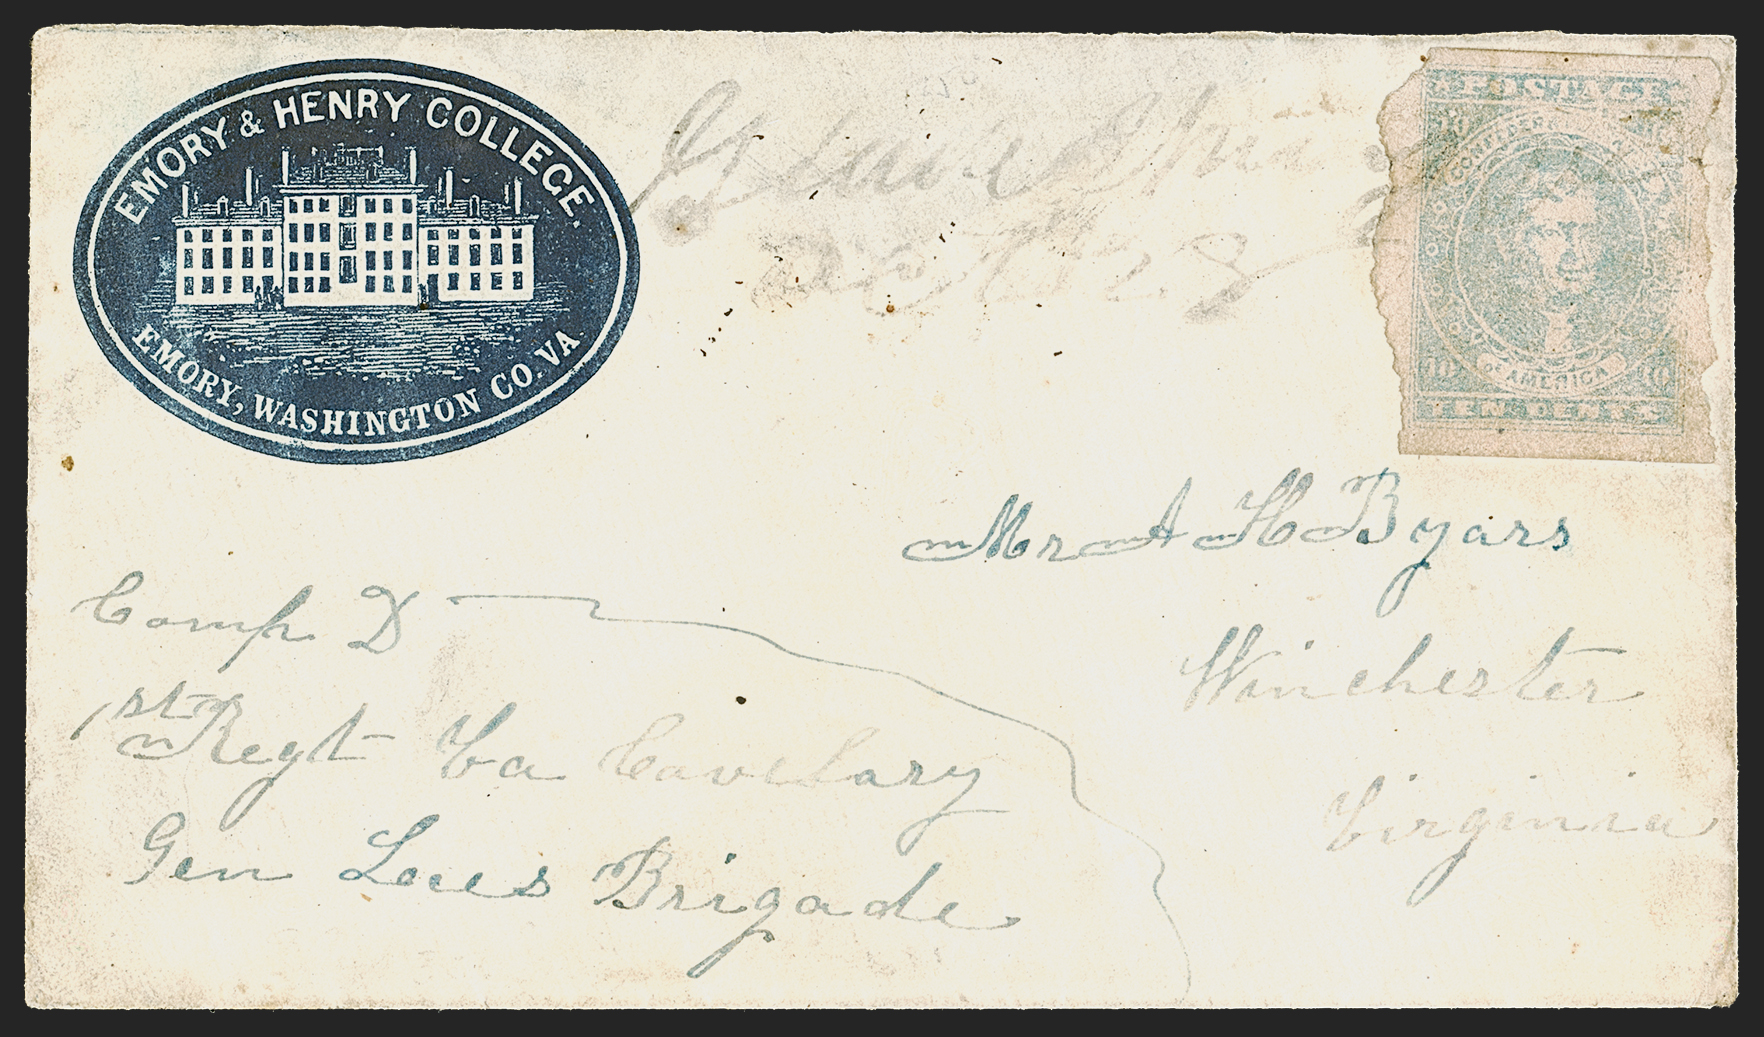 EMORY & HENRY COLLEGE.
EMORY, WASHINGTON CO. VA
Glade Spring
Oct 28
POSTAGE
CONFEDERATE STATES
OF AMERICA
10 10
TEN CENTS
Mr A H Byars
Winchester
Virginia
Comp D
1st Regt Va Cavelary
Gen Lees Brigade